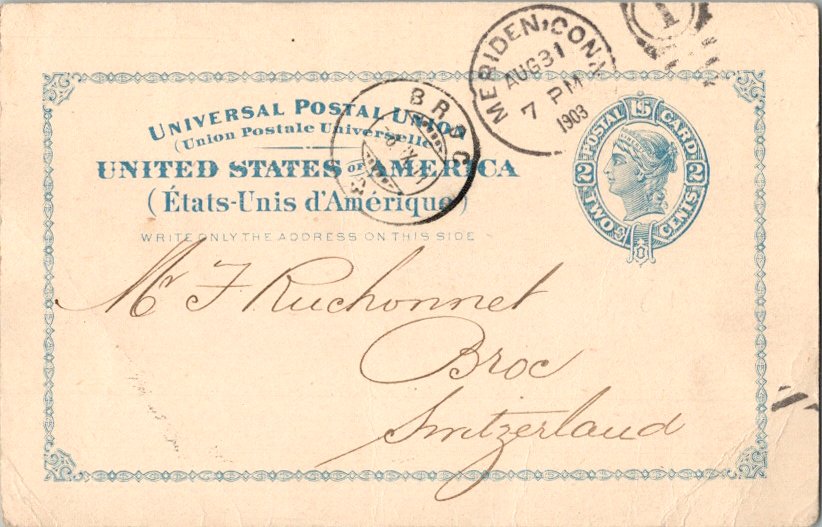 MERIDEN, CONN.
AUG 31
7 PM
1903
1
UNIVERSAL POSTAL UNION
(Union Postale Universelle)
UNITED STATES OF AMERICA
(États-Unis d'Amérique)
WRITE ONLY THE ADDRESS ON THIS SIDE
BROC
POSTAL CARD
2 2
TWO CENTS
Mr F Ruchonnet
Broc
Switzerland